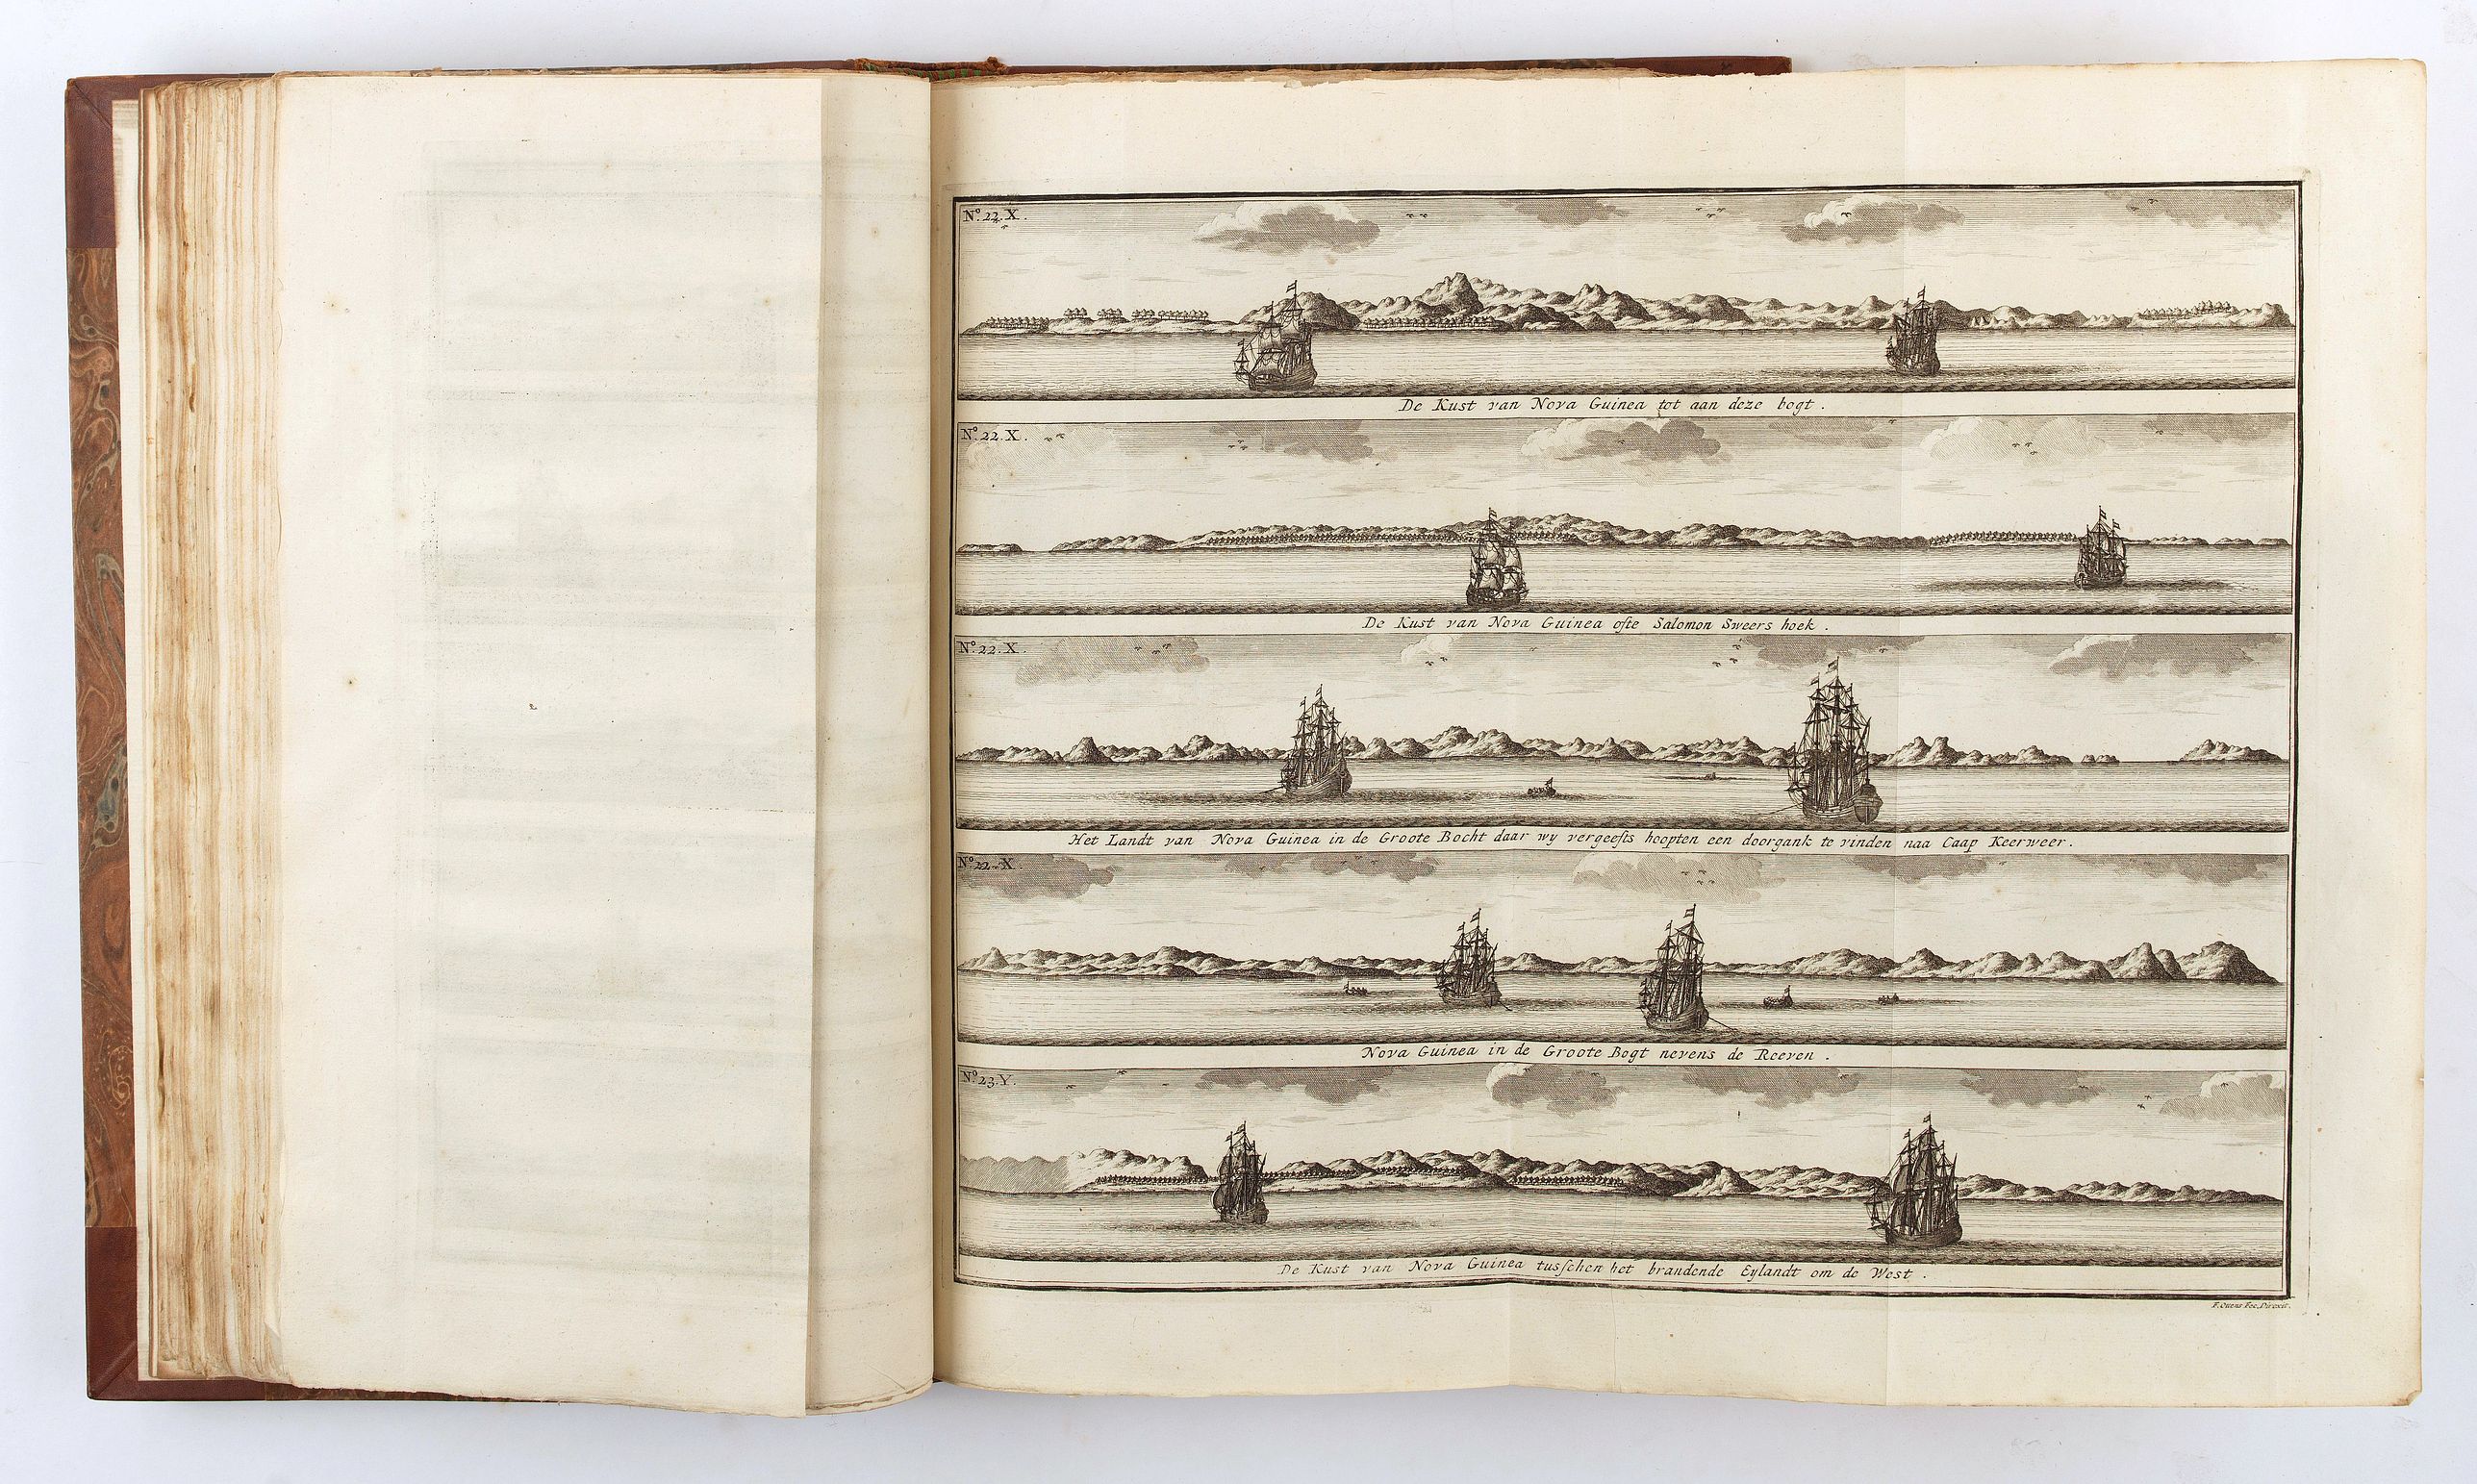 Nº. 22. X.
De Kust van Nova Guinea tot aan deze bogt.
Nº. 22. X.
De Kust van Nova Guinea ofte Salomon Sweers hoek.
Nº. 22. X.
Het Landt van Nova Guinea in de Groote Bocht daar wy vergeefts hoopten een doorgank te vinden naa Caap Keerweer.
Nº. 22. X.
Nova Guinea in de Groote Bogt nevens de Reeven.
Nº. 23. Y.
De Kust van Nova Guinea tusschen het brandende Eylandt om de West.
F. Ottens Fec. Direxit.